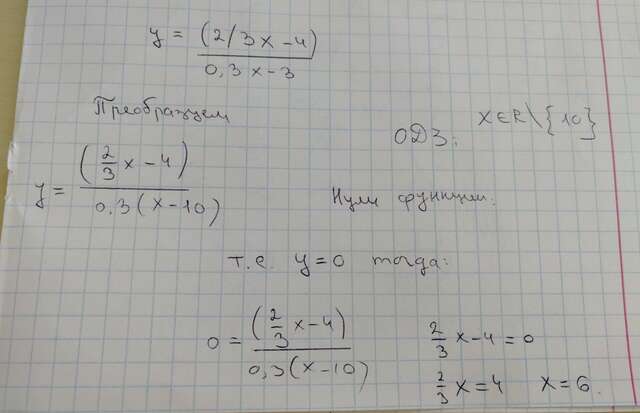 y = (2/3x-4) / 0,3x-3
Преобразуем
ОДЗ: x∈R\{10}
y = (2/3 x - 4) / 0.3(x-10)
Нули функции:
т.е. y=0 тогда:
0 = (2/3 x - 4) / 0,3(x-10)
2/3 x-4=0
2/3 x=4 x=6.